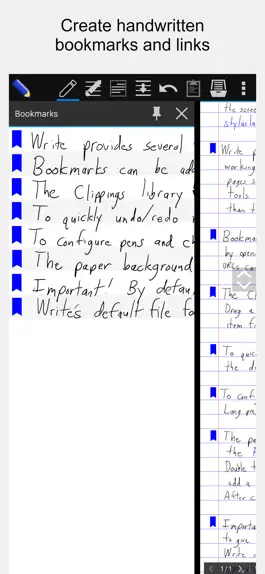 Create handwritten
bookmarks and links
Bookmarks
Write provides several
Bookmarks can be
The Clippings library
To quickly undo/redo
To configure pens and
The paper background
Important! By
Write's default file
the
stylus
Write
working
pages
tools
than
Bookma
by open
URLs can
The C
Drag a
item
To quic
the d
To conf
Long pre
The pa
the
Double
add a
After c
Importa
to give
Write
1/1